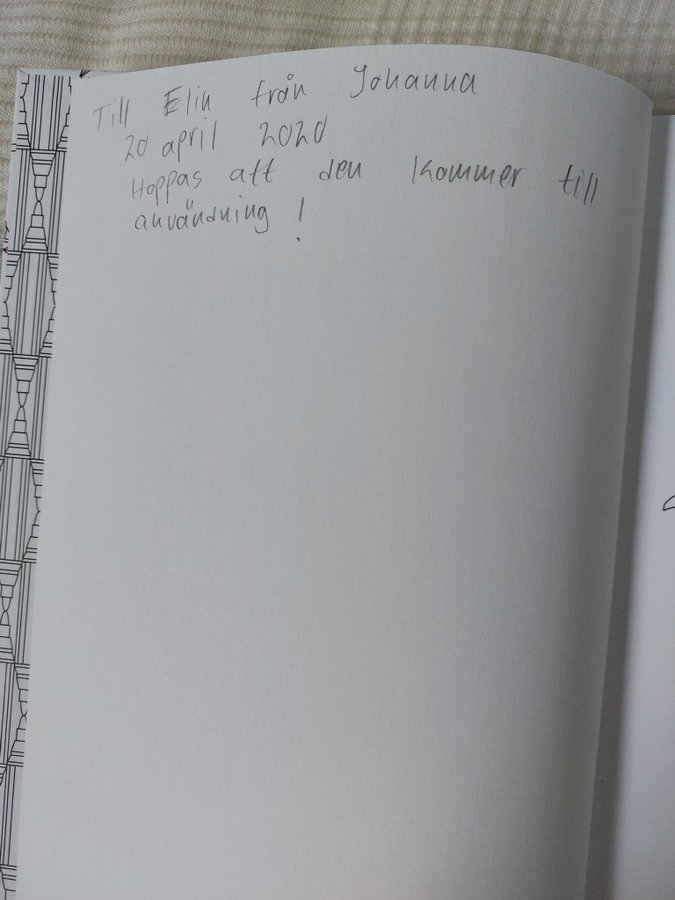 Till Elin från Johanna
20 april 2020
Hoppas att den kommer till
användning!